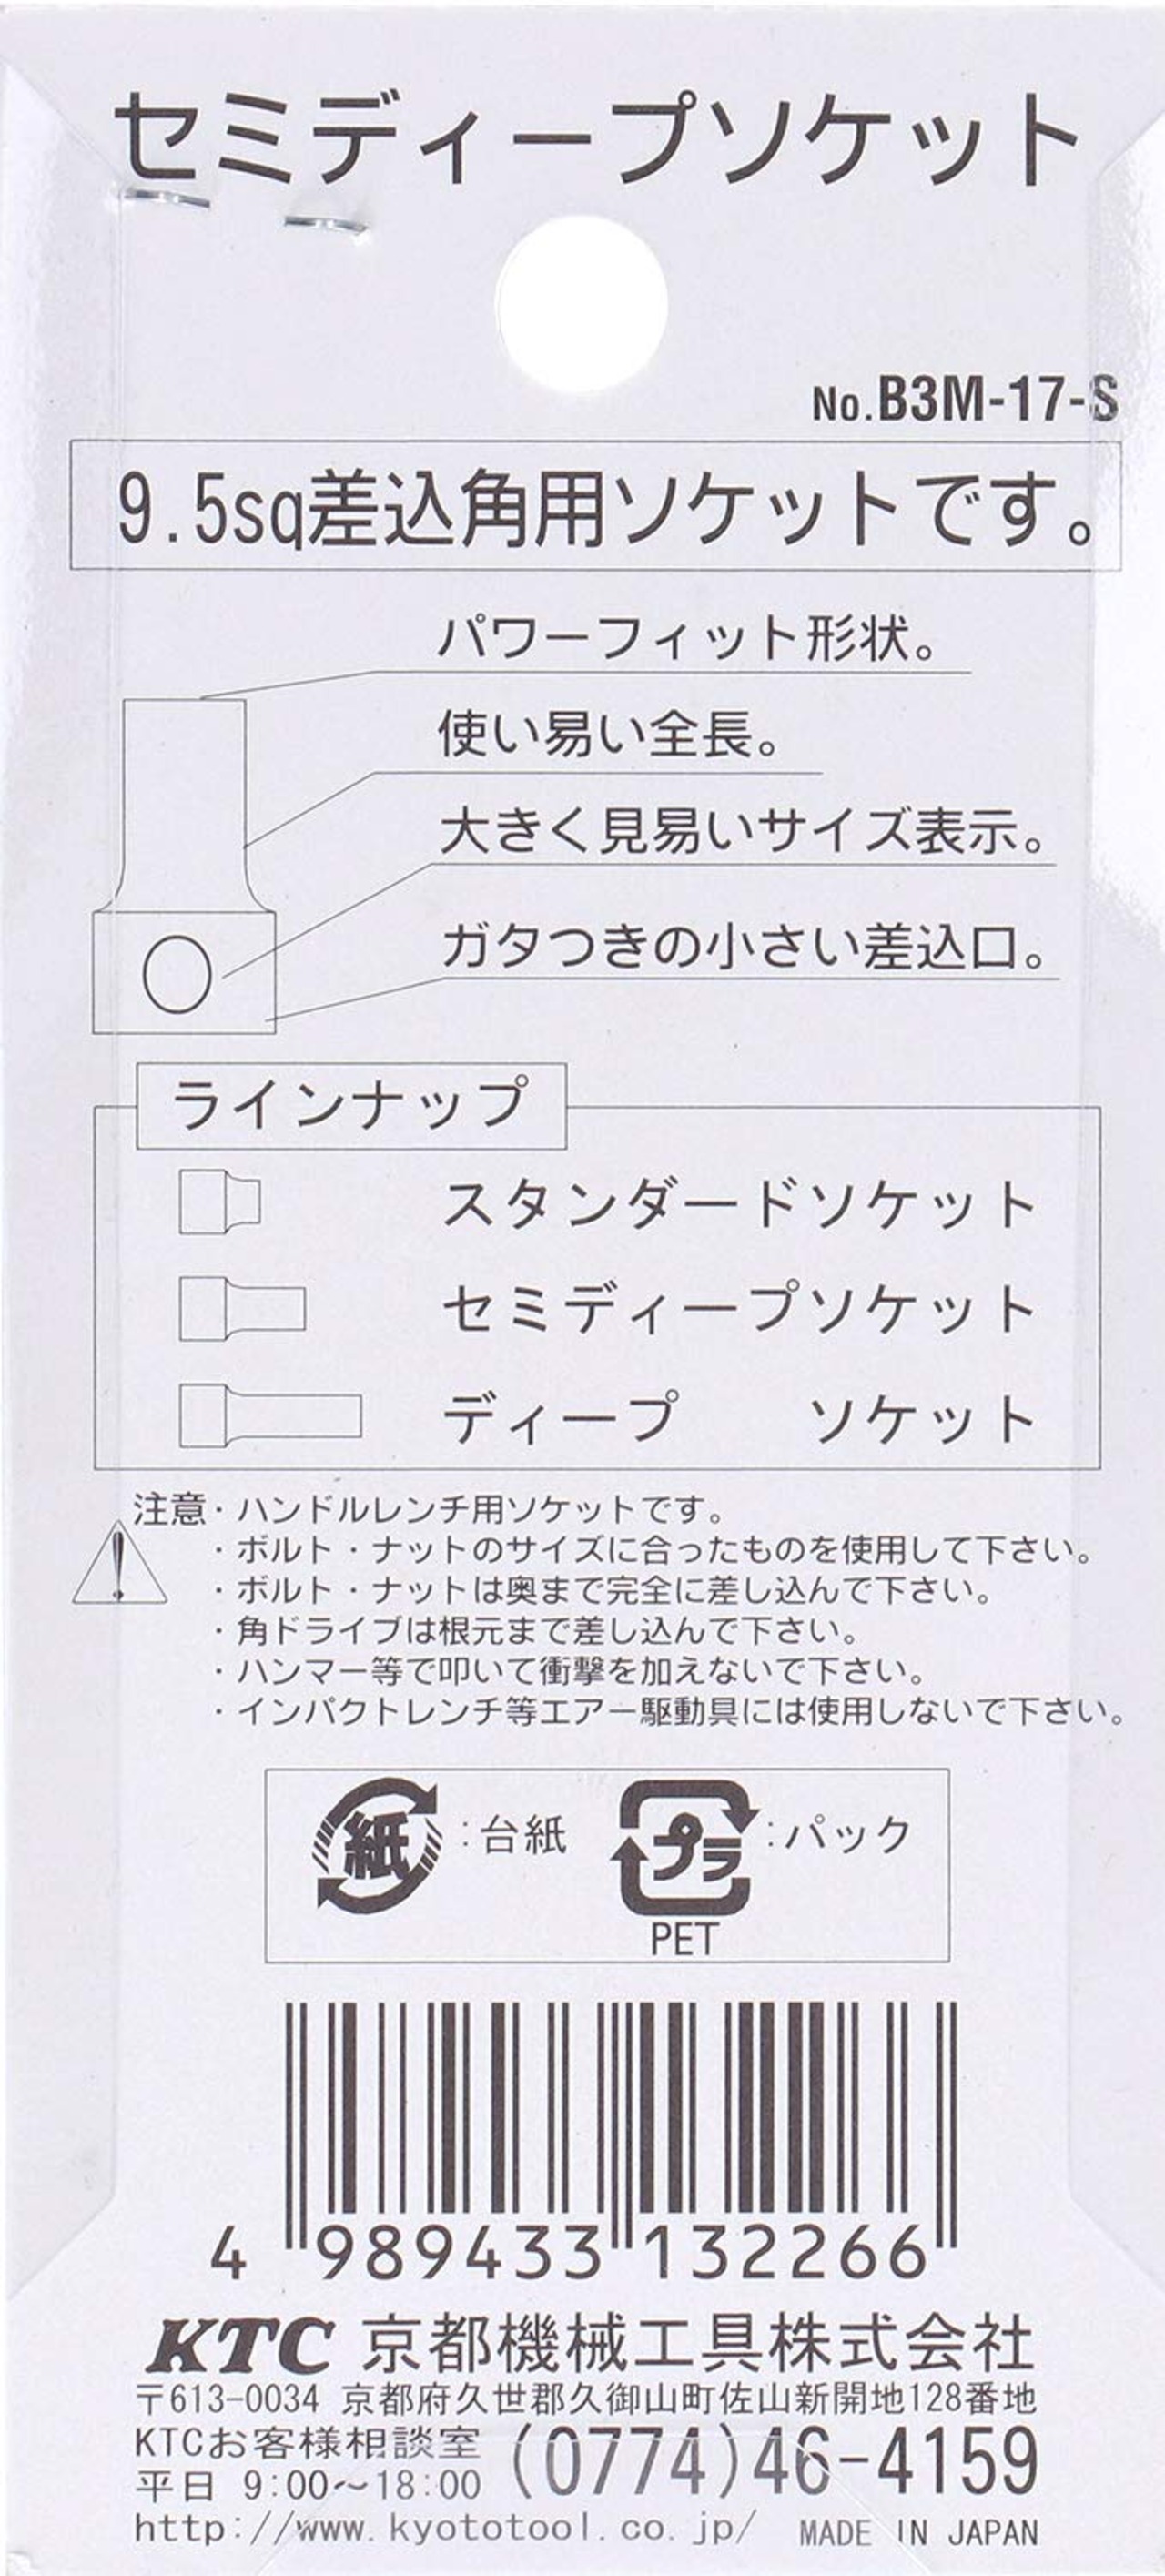 セミディープソケット
No.B3M-17-S
9.5sq差込角用ソケットです。
パワーフィット形状。
使い易い全長。
大きく見易いサイズ表示。
ガタつきの小さい差込口。
ラインナップ
スタンダードソケット
セミディープソケット
ディープ　ソケット
注意・ハンドルレンチ用ソケットです。
・ボルト・ナットのサイズに合ったものを使用して下さい。
・ボルト・ナットは奥まで完全に差し込んで下さい。
・角ドライブは根元まで差し込んで下さい。
・ハンマー等で叩いて衝撃を加えないで下さい。
・インパクトレンチ等エアー駆動具には使用しないで下さい。
紙:台紙 プラ:パック
PET
4 989433 132266
KTC 京都機械工具株式会社
〒613-0034 京都府久世郡久御山町佐山新開地128番地
KTCお客様相談室 (0774)46-4159
平日 9:00～18:00
http://www.kyototool.co.jp/ MADE IN JAPAN